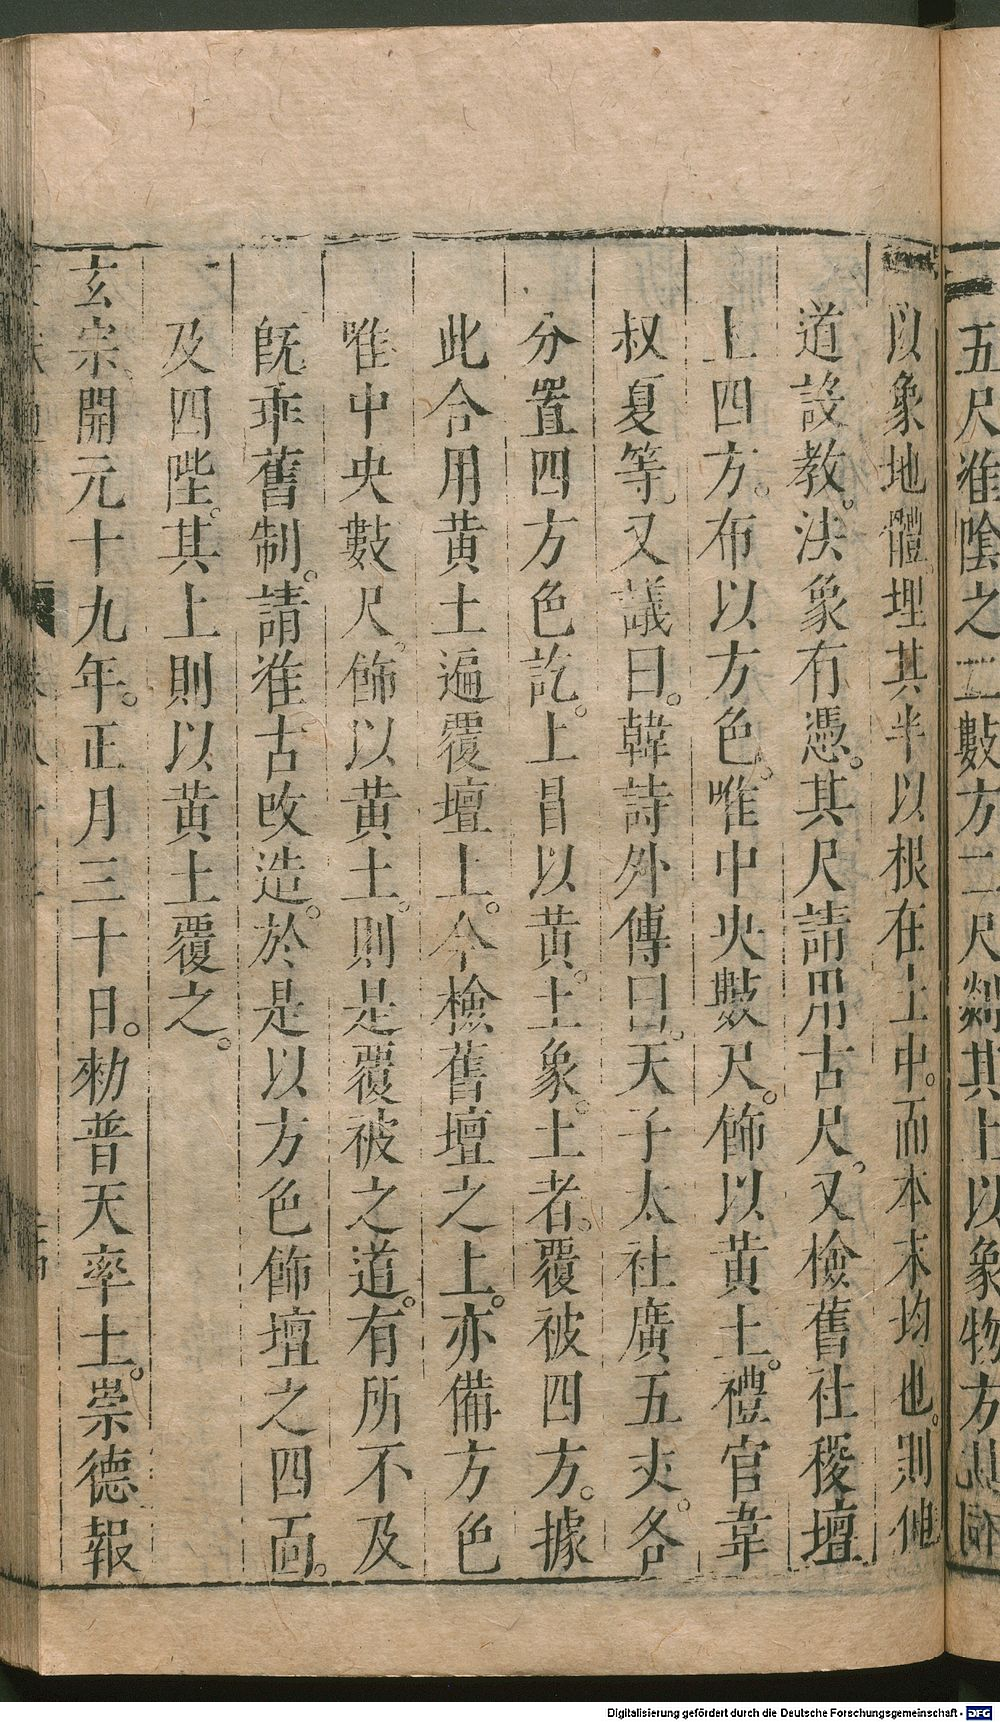 五尺准陰之二數方二尺剡其上以象物方其下
以象地體埋其半以根在土中而本末均也則神
道設教法象有憑其尺請用古尺又檢舊社稷壇
上四方布以方色唯中央數尺飾以黃土禮官韋
叔夏等又議曰韓詩外傳曰天子太社廣五丈各
分置四方色訖上冒以黃土象土者覆被四方據
此合用黃土遍覆壇上今檢舊壇之上亦備方色
唯中央數尺飾以黃土則是覆被之道有所不及
旣乖舊制請准古改造於是以方色飾壇之四面
及四陛其上則以黃土覆之
玄宗開元十九年正月三十日勑普天率土崇德報
Digitalisierung gefördert durch die Deutsche Forschungsgemeinschaft - DFG